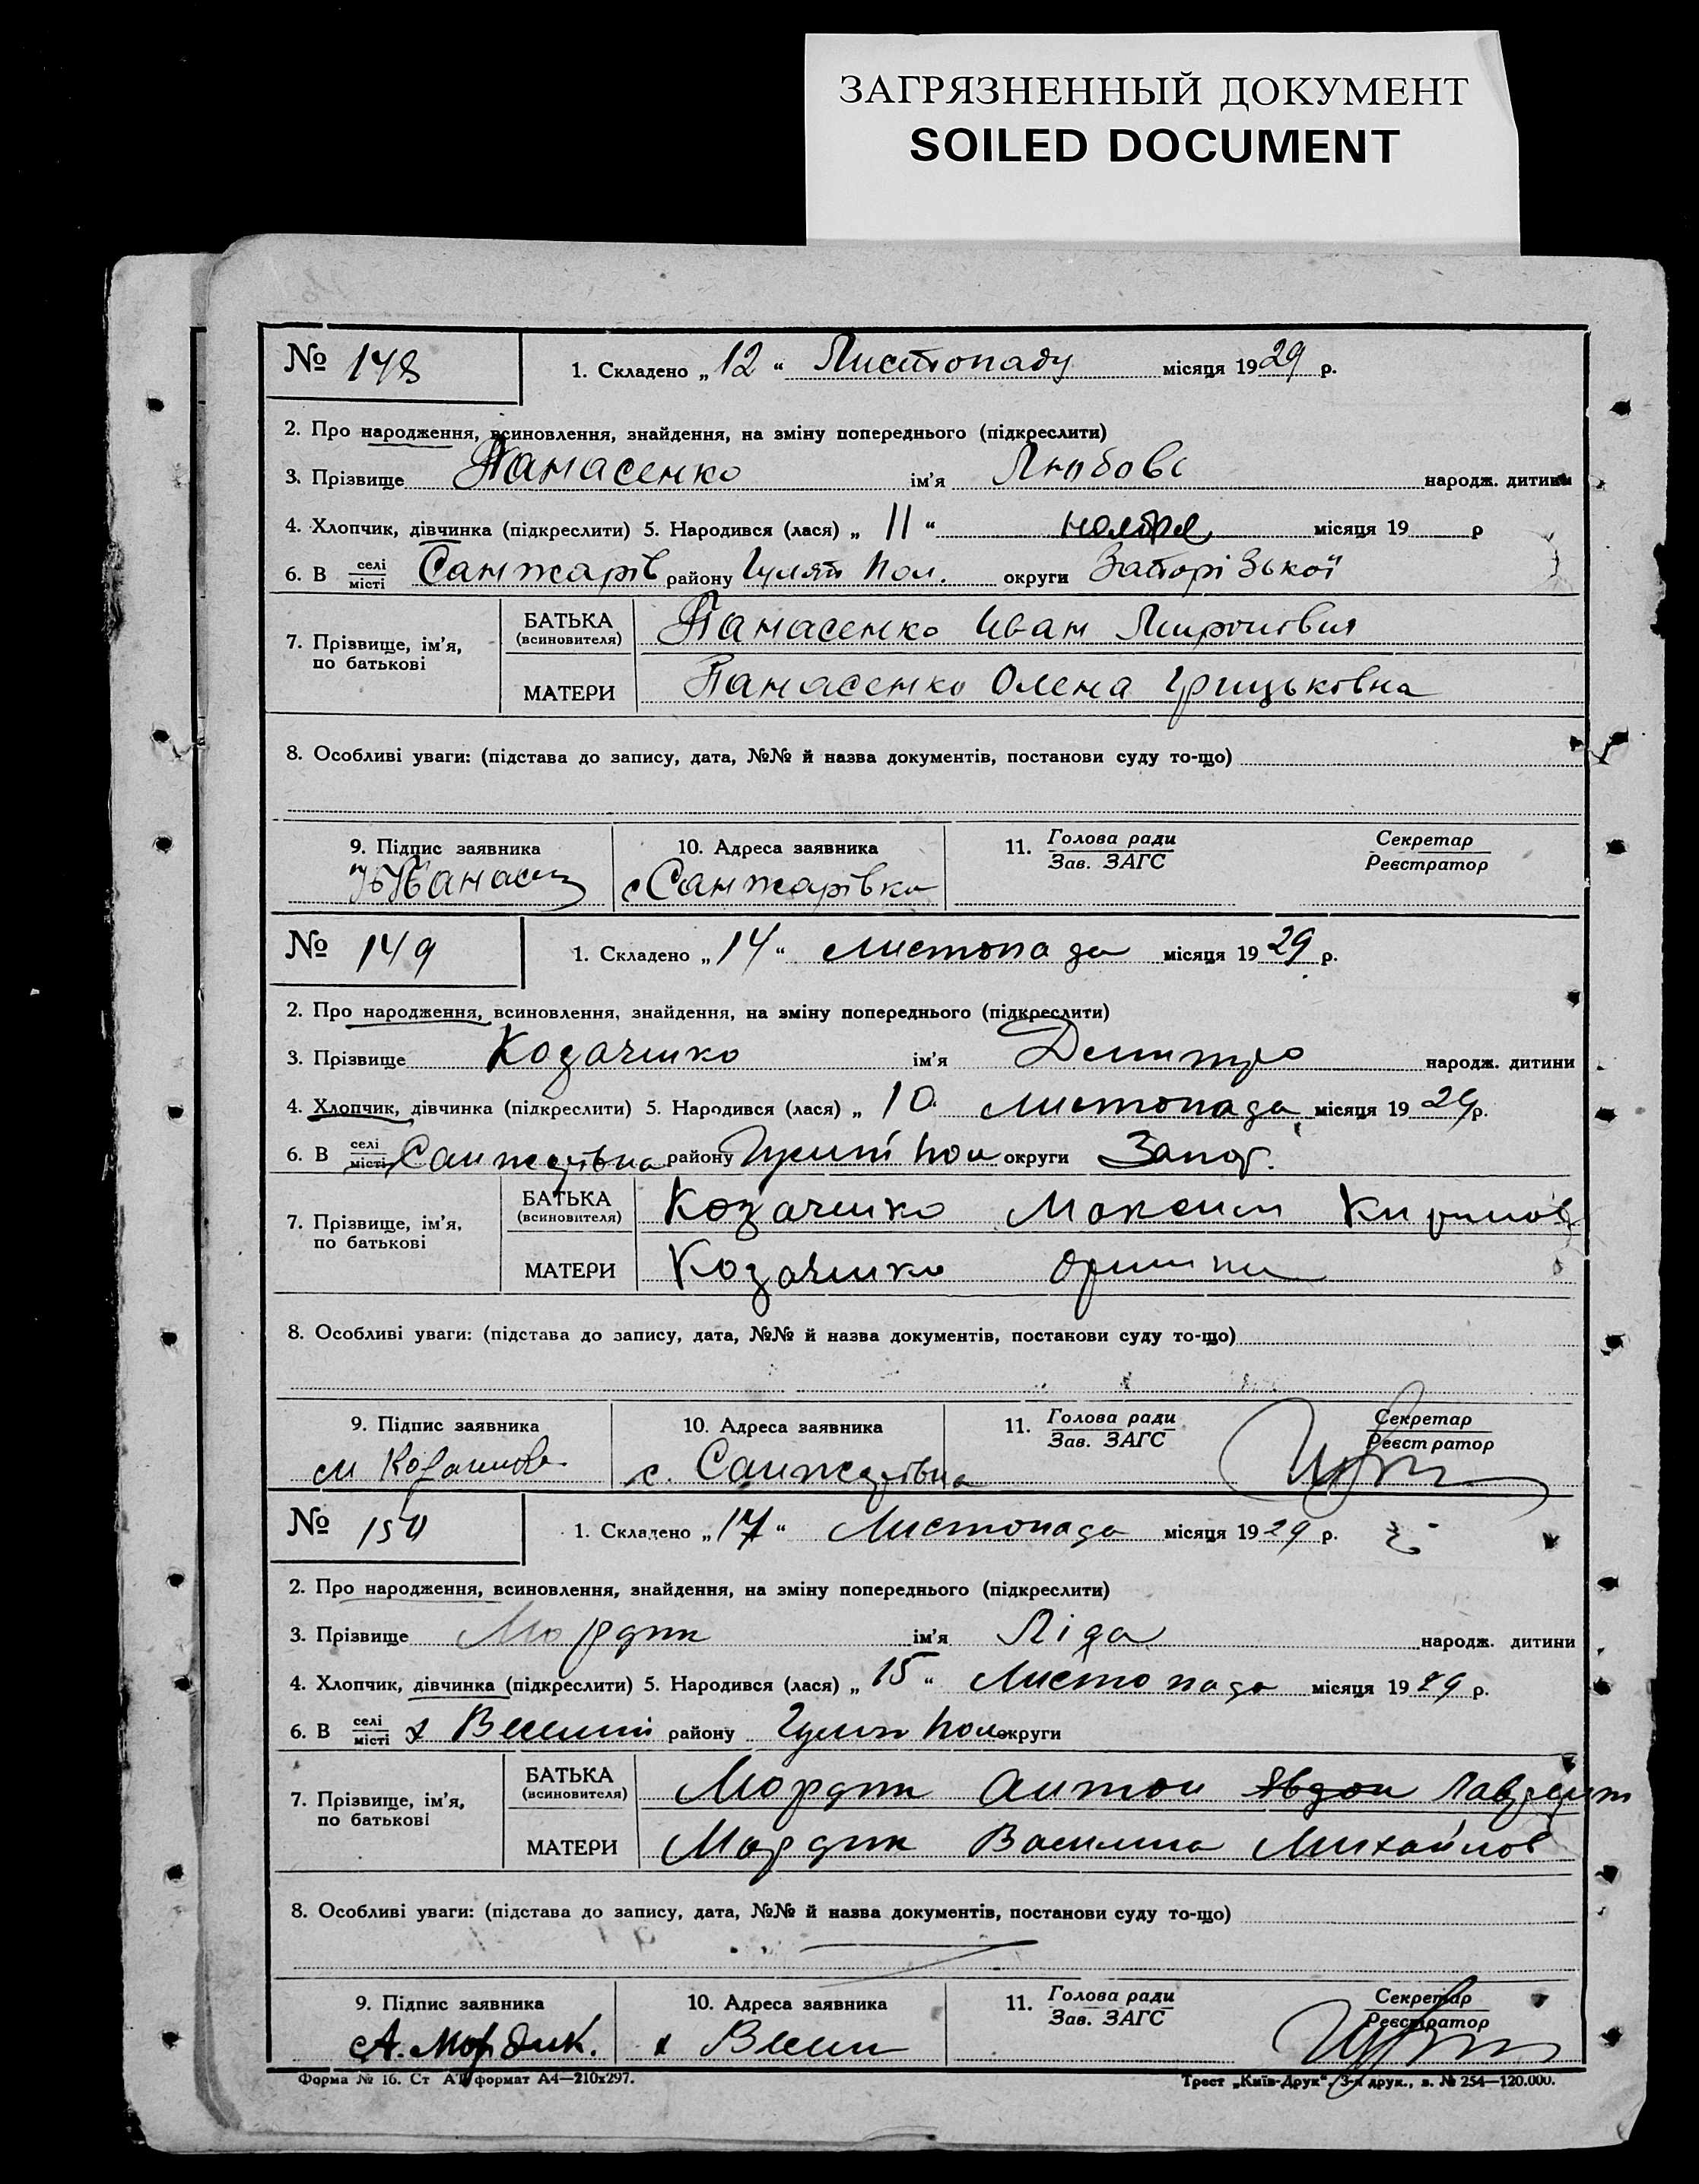 ЗАГРЯЗНЕННЫЙ ДОКУМЕНТ
SOILED DOCUMENT
№ 148 1. Складено „12“ Листопаду місяця 1929 р.
2. Про народження, всиновлення, знайдення, на зміну попереднього (підкреслити)
3. Прізвище Панасенко ім'я Любовь народж. дитини
4. Хлопчик, дівчинка (підкреслити) 5. Народився (лася) „11“ ноября місяця 19 р
6. В селі місті Санжарів району Гуляй Пол. округи Запорізької
7. Прізвище, ім'я, по батькові
БАТЬКА (всиновителя) Панасенко Иван
МАТЕРИ Панасенко Олена Грицьковна
8. Особливі уваги: (підстава до запису, дата, №№ й назва документів, постанови суду то-що)
9. Підпис заявника 10. Адреса заявника 11. Голова ради Зав. ЗАГС Секретар Реєстратор
с Санжарівка
№ 149 1. Складено „14“ листопада місяця 1929 р.
2. Про народження, всиновлення, знайдення, на зміну попереднього (підкреслити)
3. Прізвище Козаченко ім'я Дмитро народж. дитини
4. Хлопчик, дівчинка (підкреслити) 5. Народився (лася) „10 листопада місяця 1929 р.
6. В селі місті Санжарівка району Гуляй Пол округи Запор.
7. Прізвище, ім'я, по батькові
БАТЬКА (всиновителя) Козаченко Максим Кирилов
МАТЕРИ Козаченко
8. Особливі уваги: (підстава до запису, дата, №№ й назва документів, постанови суду то-що)
9. Підпис заявника 10. Адреса заявника 11. Голова ради Зав. ЗАГС Секретар Реєстратор
с. Санжарівка
№ 150 1. Складено „17“ Листопада місяця 1929 р.
2. Про народження, всиновлення, знайдення, на зміну попереднього (підкреслити)
3. Прізвище Мордик ім'я Ліда народж. дитини
4. Хлопчик, дівчинка (підкреслити) 5. Народився (лася) „15“ Листопада місяця 1929 р.
6. В селі місті х Веселий району Гуляй Пол округи
7. Прізвище, ім'я, по батькові
БАТЬКА (всиновителя) Мордик Антон
МАТЕРИ Мордик Василина Михайлов
8. Особливі уваги: (підстава до запису, дата, №№ й назва документів, постанови суду то-що)
9. Підпис заявника 10. Адреса заявника 11. Голова ради Зав. ЗАГС Секретар Реєстратор
А. Мордик. х Весел
Форма № 16. Ст АТ формат А4—210х297. Трест „Київ-Друк“. 3-я друк., з. № 254—120.000.